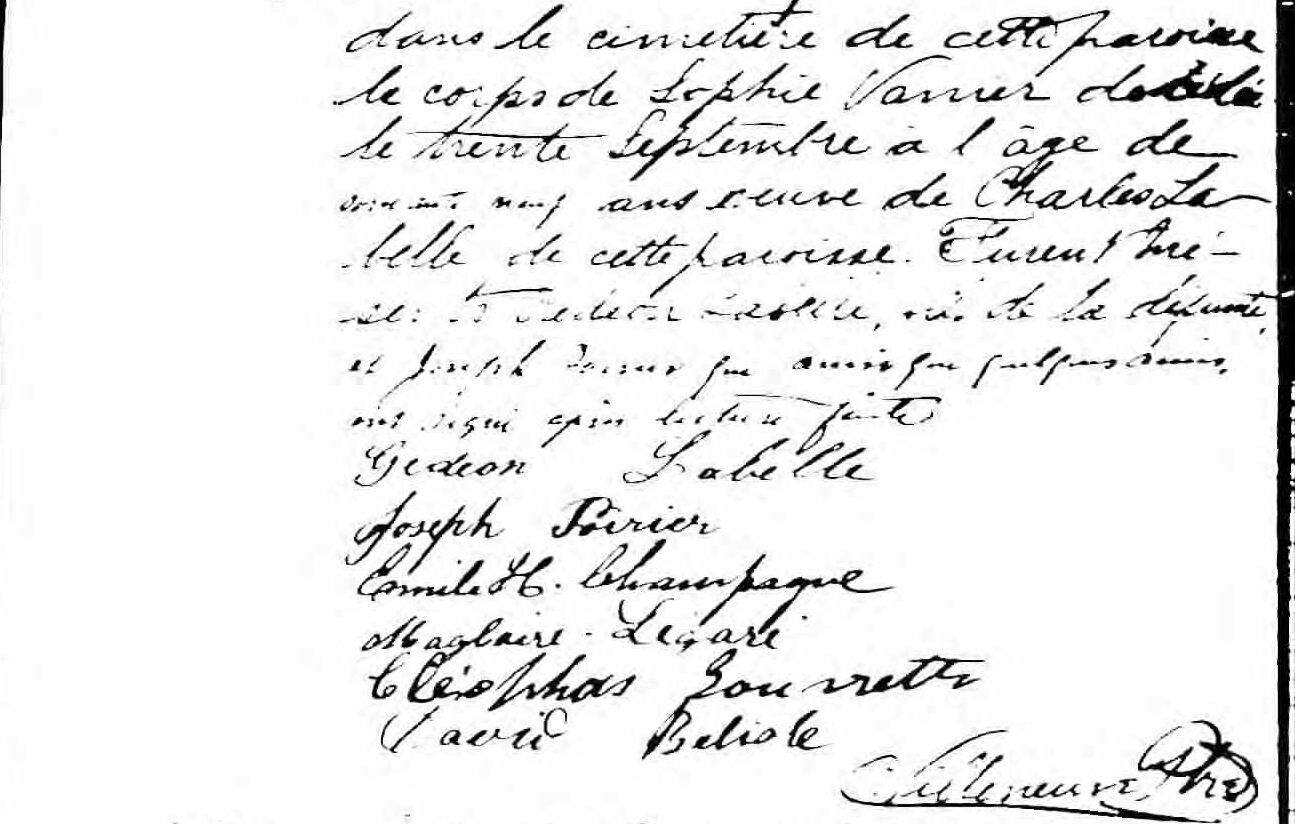 dans le cimetière de cette paroisse
le corps de Sophie Vanier décédée
le trente Septembre à l'âge de
neuf ans veuve de Charles La-
belle de cette paroisse. Furent pré-
sents Gédéon Labelle, de la défunte,
et Joseph Poirier qui ainsi que quelques amis,
ont signé après lecture faite
Gedeon Labelle
Joseph Poirier
Emile H. Champagne
Magloire Légaré
Cléophas Gouvrette
David Belisle
Villeneuve Ptre